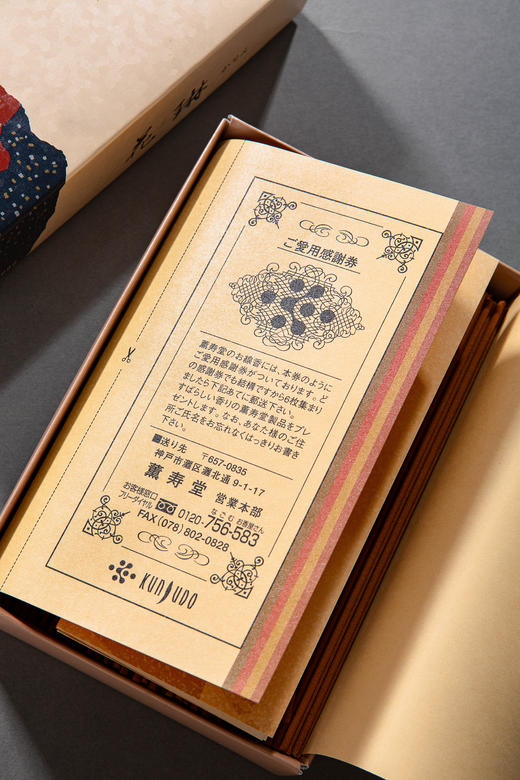 花琳
かりん
ご愛用感謝券
薫寿堂のお線香には、本券のように
ご愛用感謝券がついております。ど
の感謝券でも結構ですから6枚集まり
ましたら下記あてに郵送下さい。
すばらしい香りの薫寿堂製品をプレ
ゼントします。なお、あなた様のご住
所ご氏名をお忘れなくはっきりお書き
下さい。
■送り先 〒657-0835
神戸市灘区灘北通 9-1-17
薫寿堂 営業本部
お客様窓口
フリーダイヤル
0120-756-583
なごむ お香屋さん
FAX (078) 802-0828
KUNJUDO